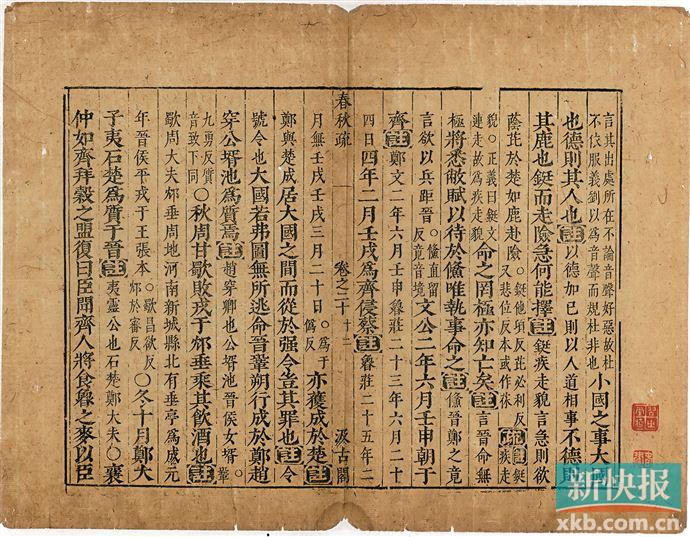 言其出處所在不論音聲好惡故杜
不依服義劉以為音聲而規杜非也
小國之事大國
也德則其人也註以德加己則以人道相事不德則
其鹿也鋌而走險急何能擇註鋌疾走貌言急則欲
蔭茠於楚如鹿赴險○鋌他頂反茠必利反
又悲位反本或作庥疏鋌疾走
貌○正義曰鋌文
連走故為疾走貌
命之罔極亦知亡矣註言晉命無
極將悉敝賦以待於鯈唯執事命之註鯈晉鄭之竟
言欲以兵距晉○鯈直留
反竟音境
文公二年六月壬申朝于
齊註鄭文二年六月壬申魯莊二十三年六月二十
四日四年二月壬戌為齊侵蔡註魯莊二十五年二
春秋疏 卷之二十 十二 汲古閣
月無壬戌壬戌三月二十日○為于
偽反
亦獲成於楚註
鄭與楚成居大國之間而從於强令豈其罪也註令
號令也大國若弗圖無所逃命晉鞏朔行成於鄭趙
穿公壻池為質焉註趙穿卿也公壻池晉侯女壻○鞏
九勇反質
音致下同
○秋周甘歜敗戎于邥垂乘其飲酒也註
歜周大夫邥垂周地河南新城縣北有垂亭為成元
年晉侯平戎于王張本○歜昌欲反
邥於審反
○冬十月鄭大
子夷石楚為質于晉註夷靈公也石楚鄭大夫○襄
仲如齊拜穀之盟復曰臣聞齊人將食魯之麥以臣
新快报
xkb.com.cn